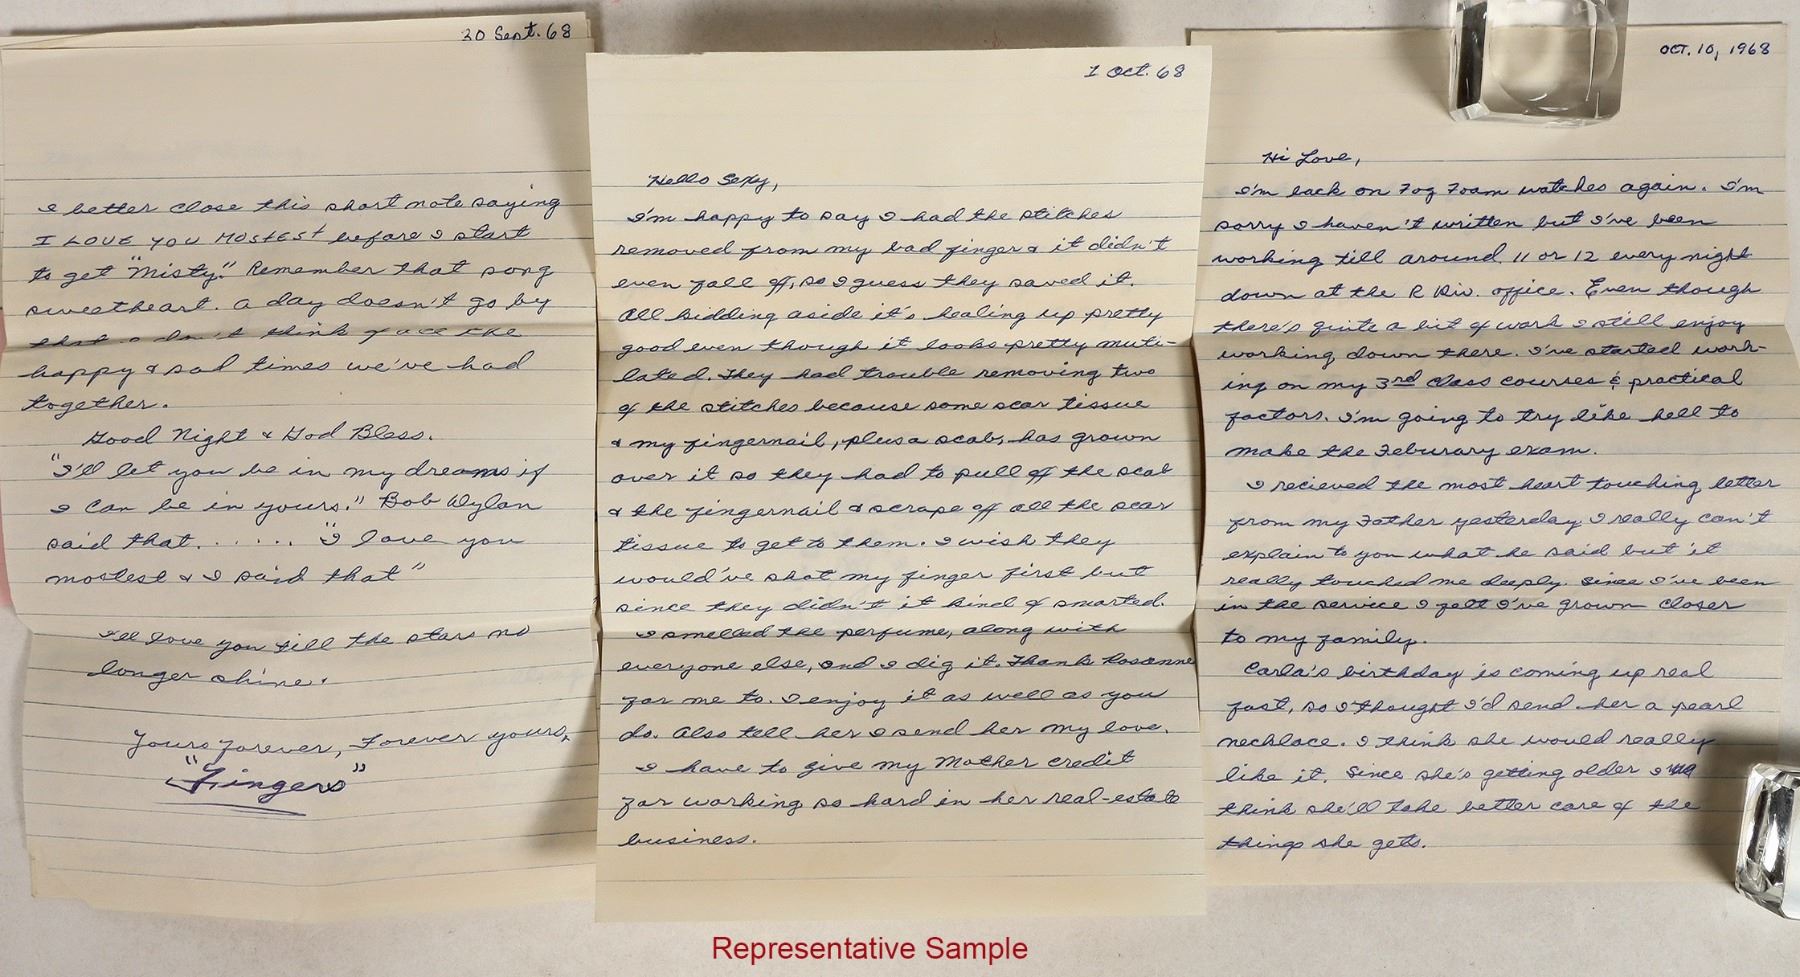 30 Sept. 68
I better close this short note saying
I LOVE YOU MOSTEST before I start
to get "Misty." Remember that song
sweetheart. A day doesn't go by
that I don't think of all the
happy & sad times we've had
together.
Good Night & God Bless.
"I'll let you be in my dreams if
I can be in yours." Bob Dylan
said that. . . . . . "I love you
mostest & I said that"
I'll love you till the stars no
longer shine.
Yours forever, Forever yours,
"Fingers"
1 Oct. 68
Hello Sexy,
I'm happy to say I had the stitches
removed from my bad finger & it didn't
even fall off, so I guess they saved it.
All kidding aside it's healing up pretty
good even though it looks pretty muti-
lated. They had trouble removing two
of the stitches because some scar tissue
& my fingernail, plus a scab, has grown
over it so they had to pull off the scab
& the fingernail & scrape off all the scar
tissue to get to them. I wish they
would've shot my finger first but
since they didn't it kind of smarted.
I smelled the perfume, along with
everyone else, and I dig it. Thank Rosanne
for me to. I enjoy it as well as you
do. Also tell her I send her my love.
I have to give my Mother credit
for working so hard in her real-estate
business.
OCT. 10, 1968
Hi Love,
I'm back on Fog Foam watches again. I'm
sorry I haven't written but I've been
working till around 11 or 12 every night
down at the R Div. office. Even though
there's quite a bit of work I still enjoy
working down there. I've started work-
ing on my 3rd Class courses & practical
factors. I'm going to try like hell to
make the Feburary exam.
I recieved the most heart touching letter
from my Father yesterday. I really can't
explain to you what he said but it
really touched me deeply. Since I've been
in the service I felt I've grown closer
to my family.
Carla's birthday is coming up real
fast, so I thought I'd send her a pearl
necklace. I think she would really
like it. Since she's getting older I
think she'll take better care of the
things she gets.
Representative Sample